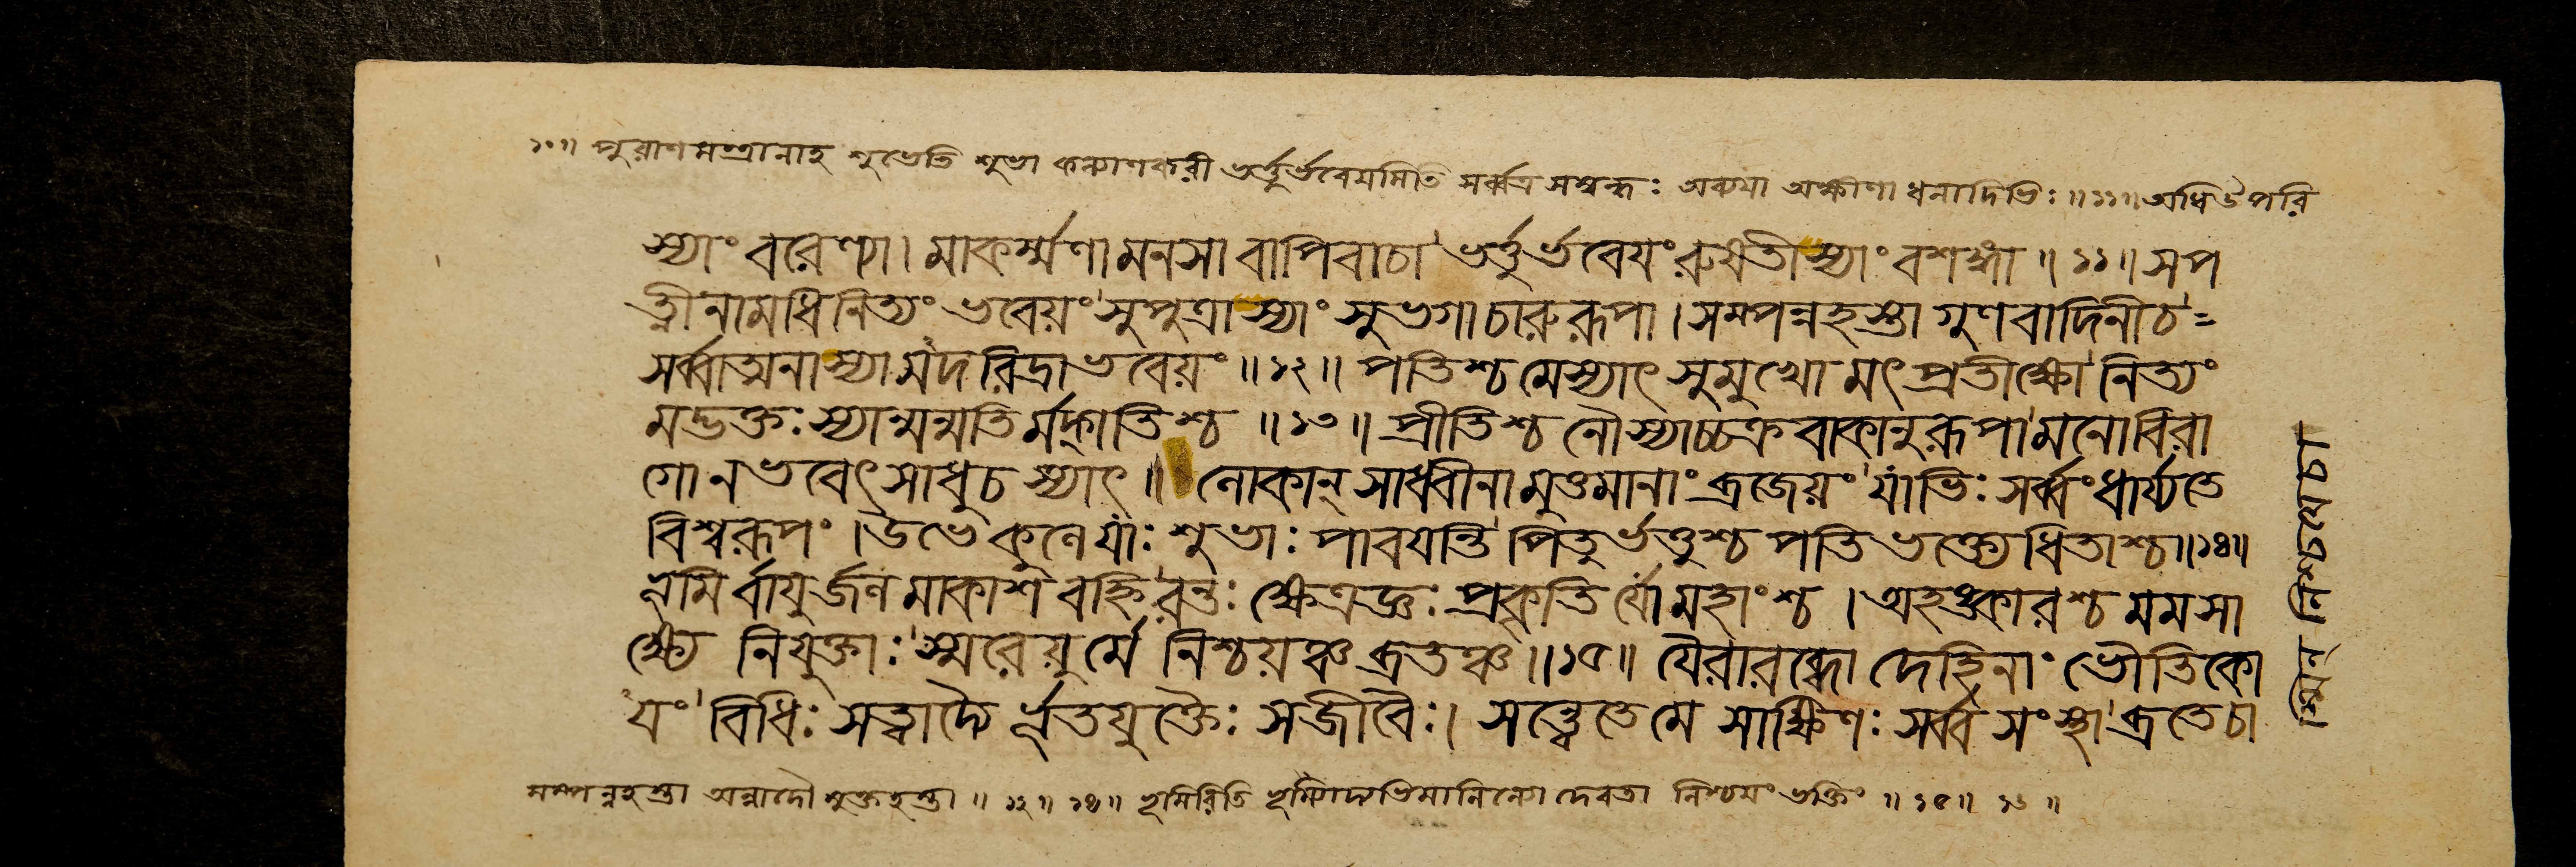 ১০॥ পুরাণমন্ত্রানাহ শুভেতি শুভা কল্যাণকরী ভর্ত্তুর্ভবেয়মিতি সর্ব্বত্র সম্বন্ধঃ অক্ষয়া অক্ষীণা ধনাদিভিঃ॥১১॥অধিউপরি
স্যাং বরেণ্যা। মাকর্ম্মণা মনসা বাপিবাচা ভর্ত্তুর্ভবেয়ং রুষতীস্যাং বশঙ্গা॥১১॥ সপ
ত্নীনামধিনিত্যং ভবেয়ং সুপুত্রাস্যাং সুভগাচারুরূপা। সম্পন্নহস্তা গুণবাদিনীচ=
সর্ব্বাত্মনাস্যামদরিদ্রাভবেয়ং॥১২॥ পতিশ্চমেস্যাৎ সুমুখোমৎপ্রতীক্ষো নিত্যং
মদ্ভক্তঃ স্যান্মন্মতির্মদ্গতিশ্চ॥১৩॥ প্রীতিশ্চ নৌস্যাচ্চক্রবাকানুরূপা মনোবিরা
গোনভবেৎ সাধুচস্যাৎ॥ লোকান্ সাধ্বীনামুত্তমানাং ব্রজেয়ং যাভিঃ সর্ব্বং ধার্য্যতে
বিশ্বরূপং। উভেকুলে যাঃ শুভাঃ পাবযন্তি পিতুর্ভর্ত্তুশ্চপতিভক্ত্যেধিতাশ্চ॥১৪॥
ভূমির্বায়ুর্জলমাকাশবহ্নিরন্তঃ ক্ষেত্রজ্ঞঃ প্রকৃতির্যামহাংশ্চ। অহঙ্কারশ্চ মমসা
ক্ষ্যে নিযুক্তাঃ স্মরেয়ুর্মে নিশ্চয়ঞ্চ ব্রতঞ্চ॥১৫॥ যৈরারব্ধো দেহিনাং ভৌতিকো
যং বিধিঃ সত্ত্বাদ্যৈর্ভূতযুক্তৈঃ সজীবৈঃ। সন্ত্বেতেমে সাক্ষিণঃ সর্ব্বসংস্থা ব্রতেচা
সম্পন্নহস্তা অন্নাদৌ মুক্তহস্তা॥১২॥১৪॥ ভূমিরিতি ভূম্যাদ্যভিমানিন্যো দেবতা নিশ্চয়ং ভক্তিং॥১৫॥১৬॥